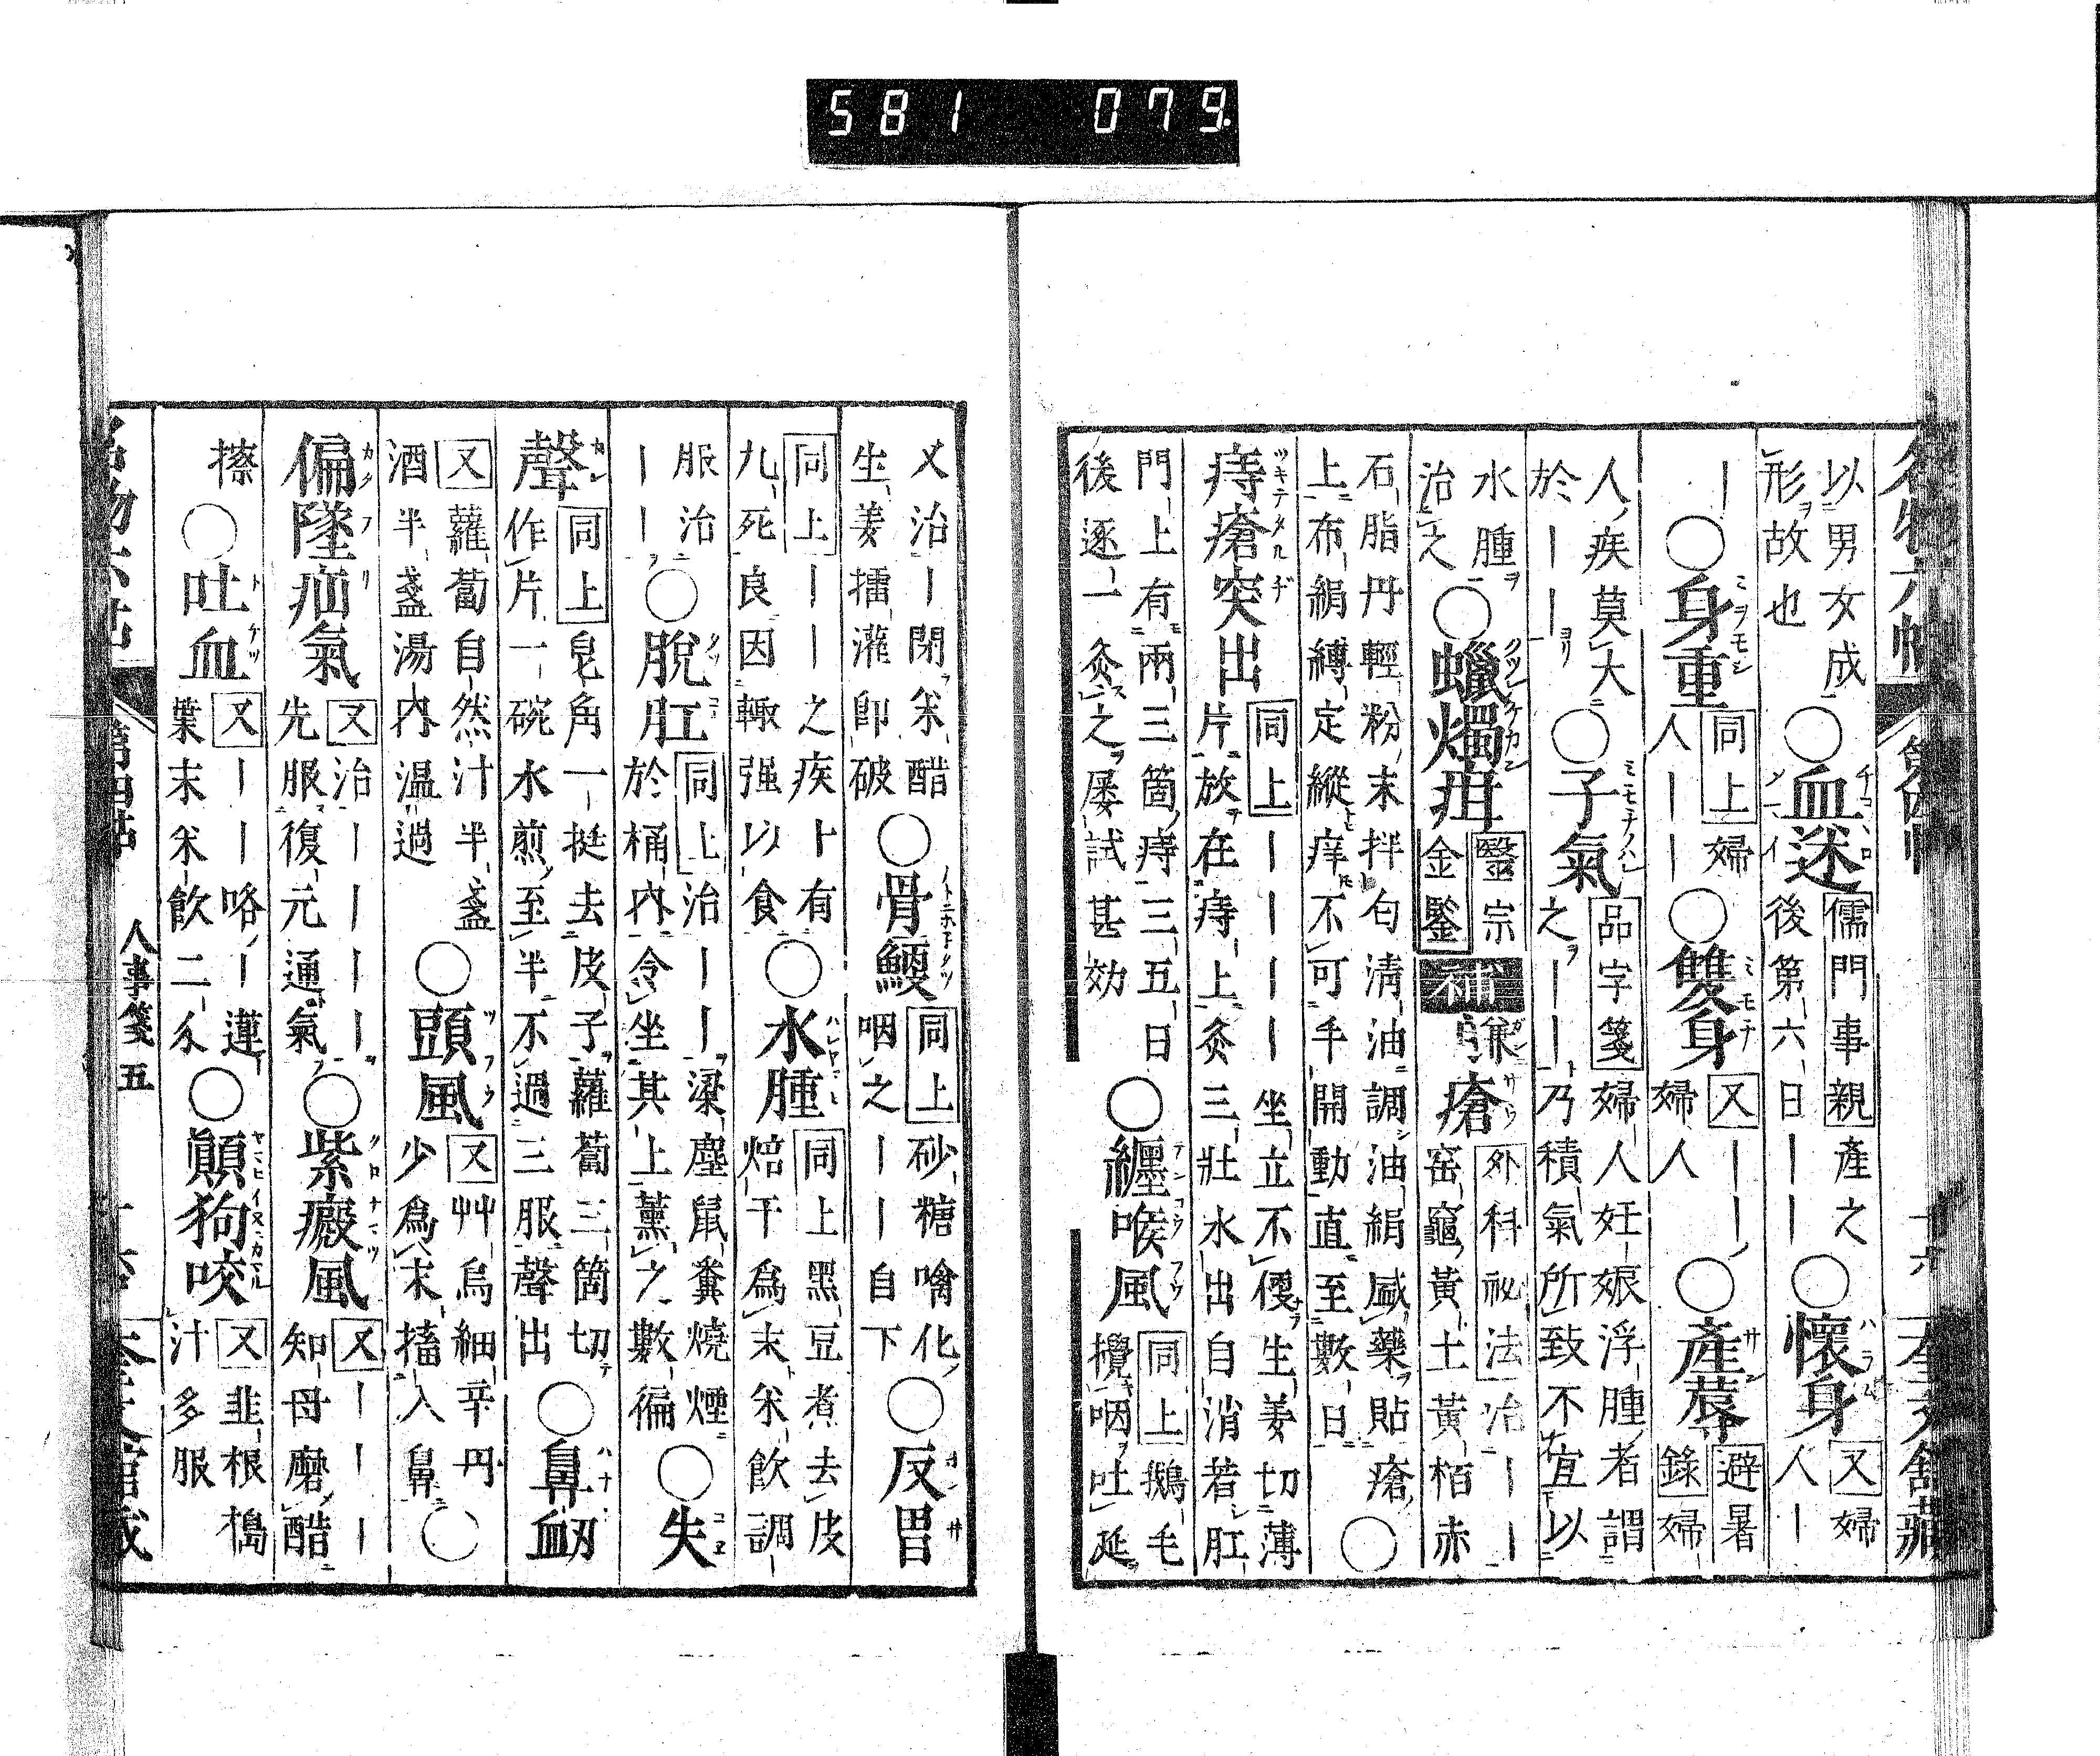 581 079
名物六帖 第四帖 十六 奎文館藏
以男女成形故也○血迷儒門事親產之後第六日｜｜○懷身又婦人｜
｜○身重同上婦人｜｜○雙身又｜｜婦人○產蓐避暑錄婦
人疾莫大於｜｜○子氣品字箋婦人妊娠浮腫者謂之｜｜乃積氣所致不宜以
水腫治之○蠟燭疳醫宗金鑒補 瘡外科祕法治｜｜窑竈黃土黃栢赤
石脂丹輕粉末拌匀清油調油絹盛藥貼瘡上布絹縛定縱痒不可手開動直至數日○
痔瘡突出同上｜｜｜｜坐立不便生姜切薄片放在痔上灸三壯水出自消若肛
門上有兩三箇痔三五日後逐一灸之屡試甚効○纏喉風同上鵝毛攪咽吐延
又治｜閉米醋生姜擂灌卽破○骨鯁同上砂糖噙化咽之｜｜自下○反胃
同上｜｜之疾十有九死良因輙强以食○水腫同上黑豆煮去皮焙干爲末米飲調
服治｜｜○脫肛同上治｜｜梁塵鼠糞燒煙於桶內令坐其上薰之數徧○失
聲同上皂角一挺去皮子蘿蔔三箇切作片一碗水煎至半不過三服聲出○鼻衂
又蘿蔔自然汁半盞酒半盞湯內温過○頭風又艸烏細辛円少爲末搐入鼻○
偏墜疝氣又治｜｜｜｜先服復元通氣○紫癜風又｜｜｜知母磨醋
擦○吐血又｜｜咯｜蓮葉末米飲二匁○顚狗咬又韭根搗汁多服
名物六帖 第四帖 人事箋五 奎文館藏